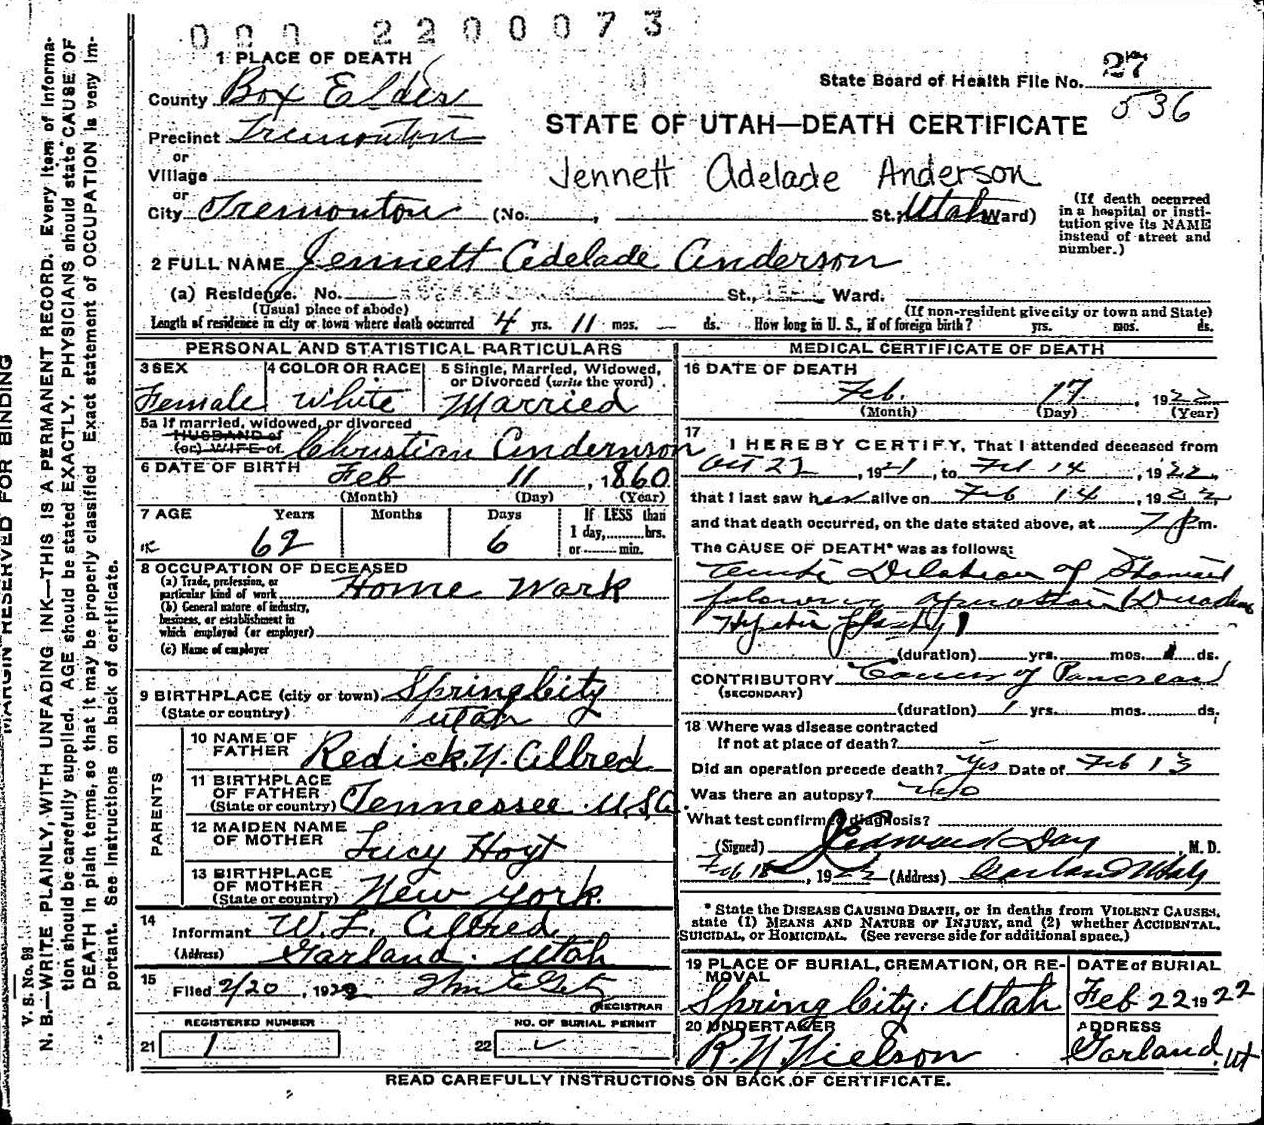 000 2200073
1 PLACE OF DEATH
State Board of Health File No. 27
536
County Box Elder
Precinct Tremonton
STATE OF UTAH—DEATH CERTIFICATE
or
Village
Jennett Adelade Anderson
or
City Tremonton (No. , St.; Utah Ward)
(If death occurred in a hospital or insti-
tution give its NAME
instead of street and
number.)
2 FULL NAME Jennett Adelade Anderson
(a) Residence. No. St., Ward.
(Usual place of abode) (If non-resident give city or town and State)
Length of residence in city or town where death occurred 4 yrs. 11 mos. — ds. How long in U. S., if of foreign birth? yrs. mos. ds.
PERSONAL AND STATISTICAL PARTICULARS
3 SEX
Female
4 COLOR OR RACE
White
5 Single, Married, Widowed,
or Divorced (write the word)
Married
5a If married, widowed, or divorced
HUSBAND of
(or) WIFE of Christian Andernson
6 DATE OF BIRTH Feb 11, 1860
(Month) (Day) (Year)
7 AGE Years Months Days If LESS than
1 day, hrs.
or min.
62 6
8 OCCUPATION OF DECEASED
(a) Trade, profession, or
particular kind of work Home Work
(b) General nature of industry,
business, or establishment in
which employed (or employer)
(c) Name of employer
9 BIRTHPLACE (city or town) Spring City
(State or country) Utah
PARENTS
10 NAME OF
FATHER Redick N. Allred
11 BIRTHPLACE
OF FATHER
(State or country) Tennessee U.S.A.
12 MAIDEN NAME
OF MOTHER Lucy Hoyt
13 BIRTHPLACE
OF MOTHER
(State or country) New York.
14
Informant W. L. Allred
(Address) Garland. Utah
15
Filed 2/20, 1922
REGISTRAR
REGISTERED NUMBER
21 1
NO. OF BURIAL PERMIT
22
MEDICAL CERTIFICATE OF DEATH
16 DATE OF DEATH
Feb. 17, 1922
(Month) (Day) (Year)
17
I HEREBY CERTIFY, That I attended deceased from
Oct 22, 1921, to Feb 14, 1922,
that I last saw her alive on Feb 14, 1922
and that death occurred, on the date stated above, at 7 P m.
The CAUSE OF DEATH* was as follows:
Acute Dilation of Stomach
following operation
(duration) yrs. mos. ds.
CONTRIBUTORY Cancer of Pancreas
(SECONDARY)
(duration) 1 yrs. mos. ds.
18 Where was disease contracted
If not at place of death?
Did an operation precede death? Yes Date of Feb 13
Was there an autopsy? No
What test confirmed diagnosis?
(Signed) Day, M. D.
Feb 18, 1922 (Address) Garland Utah
* State the DISEASE CAUSING DEATH, or in deaths from VIOLENT CAUSES,
state (1) MEANS AND NATURE OF INJURY, and (2) whether ACCIDENTAL,
SUICIDAL, or HOMICIDAL. (See reverse side for additional space.)
19 PLACE OF BURIAL, CREMATION, OR RE-
MOVAL
Spring City. Utah
DATE of BURIAL
Feb 22 1922
20 UNDERTAKER
R. N. Nielson
ADDRESS
Garland, Ut
READ CAREFULLY INSTRUCTIONS ON BACK OF CERTIFICATE.
MARGIN RESERVED FOR BINDING
V. S. No. 98
N. B.—WRITE PLAINLY, WITH UNFADING INK—THIS IS A PERMANENT RECORD. Every item of informa-
tion should be carefully supplied. AGE should be stated EXACTLY. PHYSICIANS should state CAUSE OF
DEATH in plain terms, so that it may be properly classified. Exact statement of OCCUPATION is very im-
portant. See instructions on back of certificate.